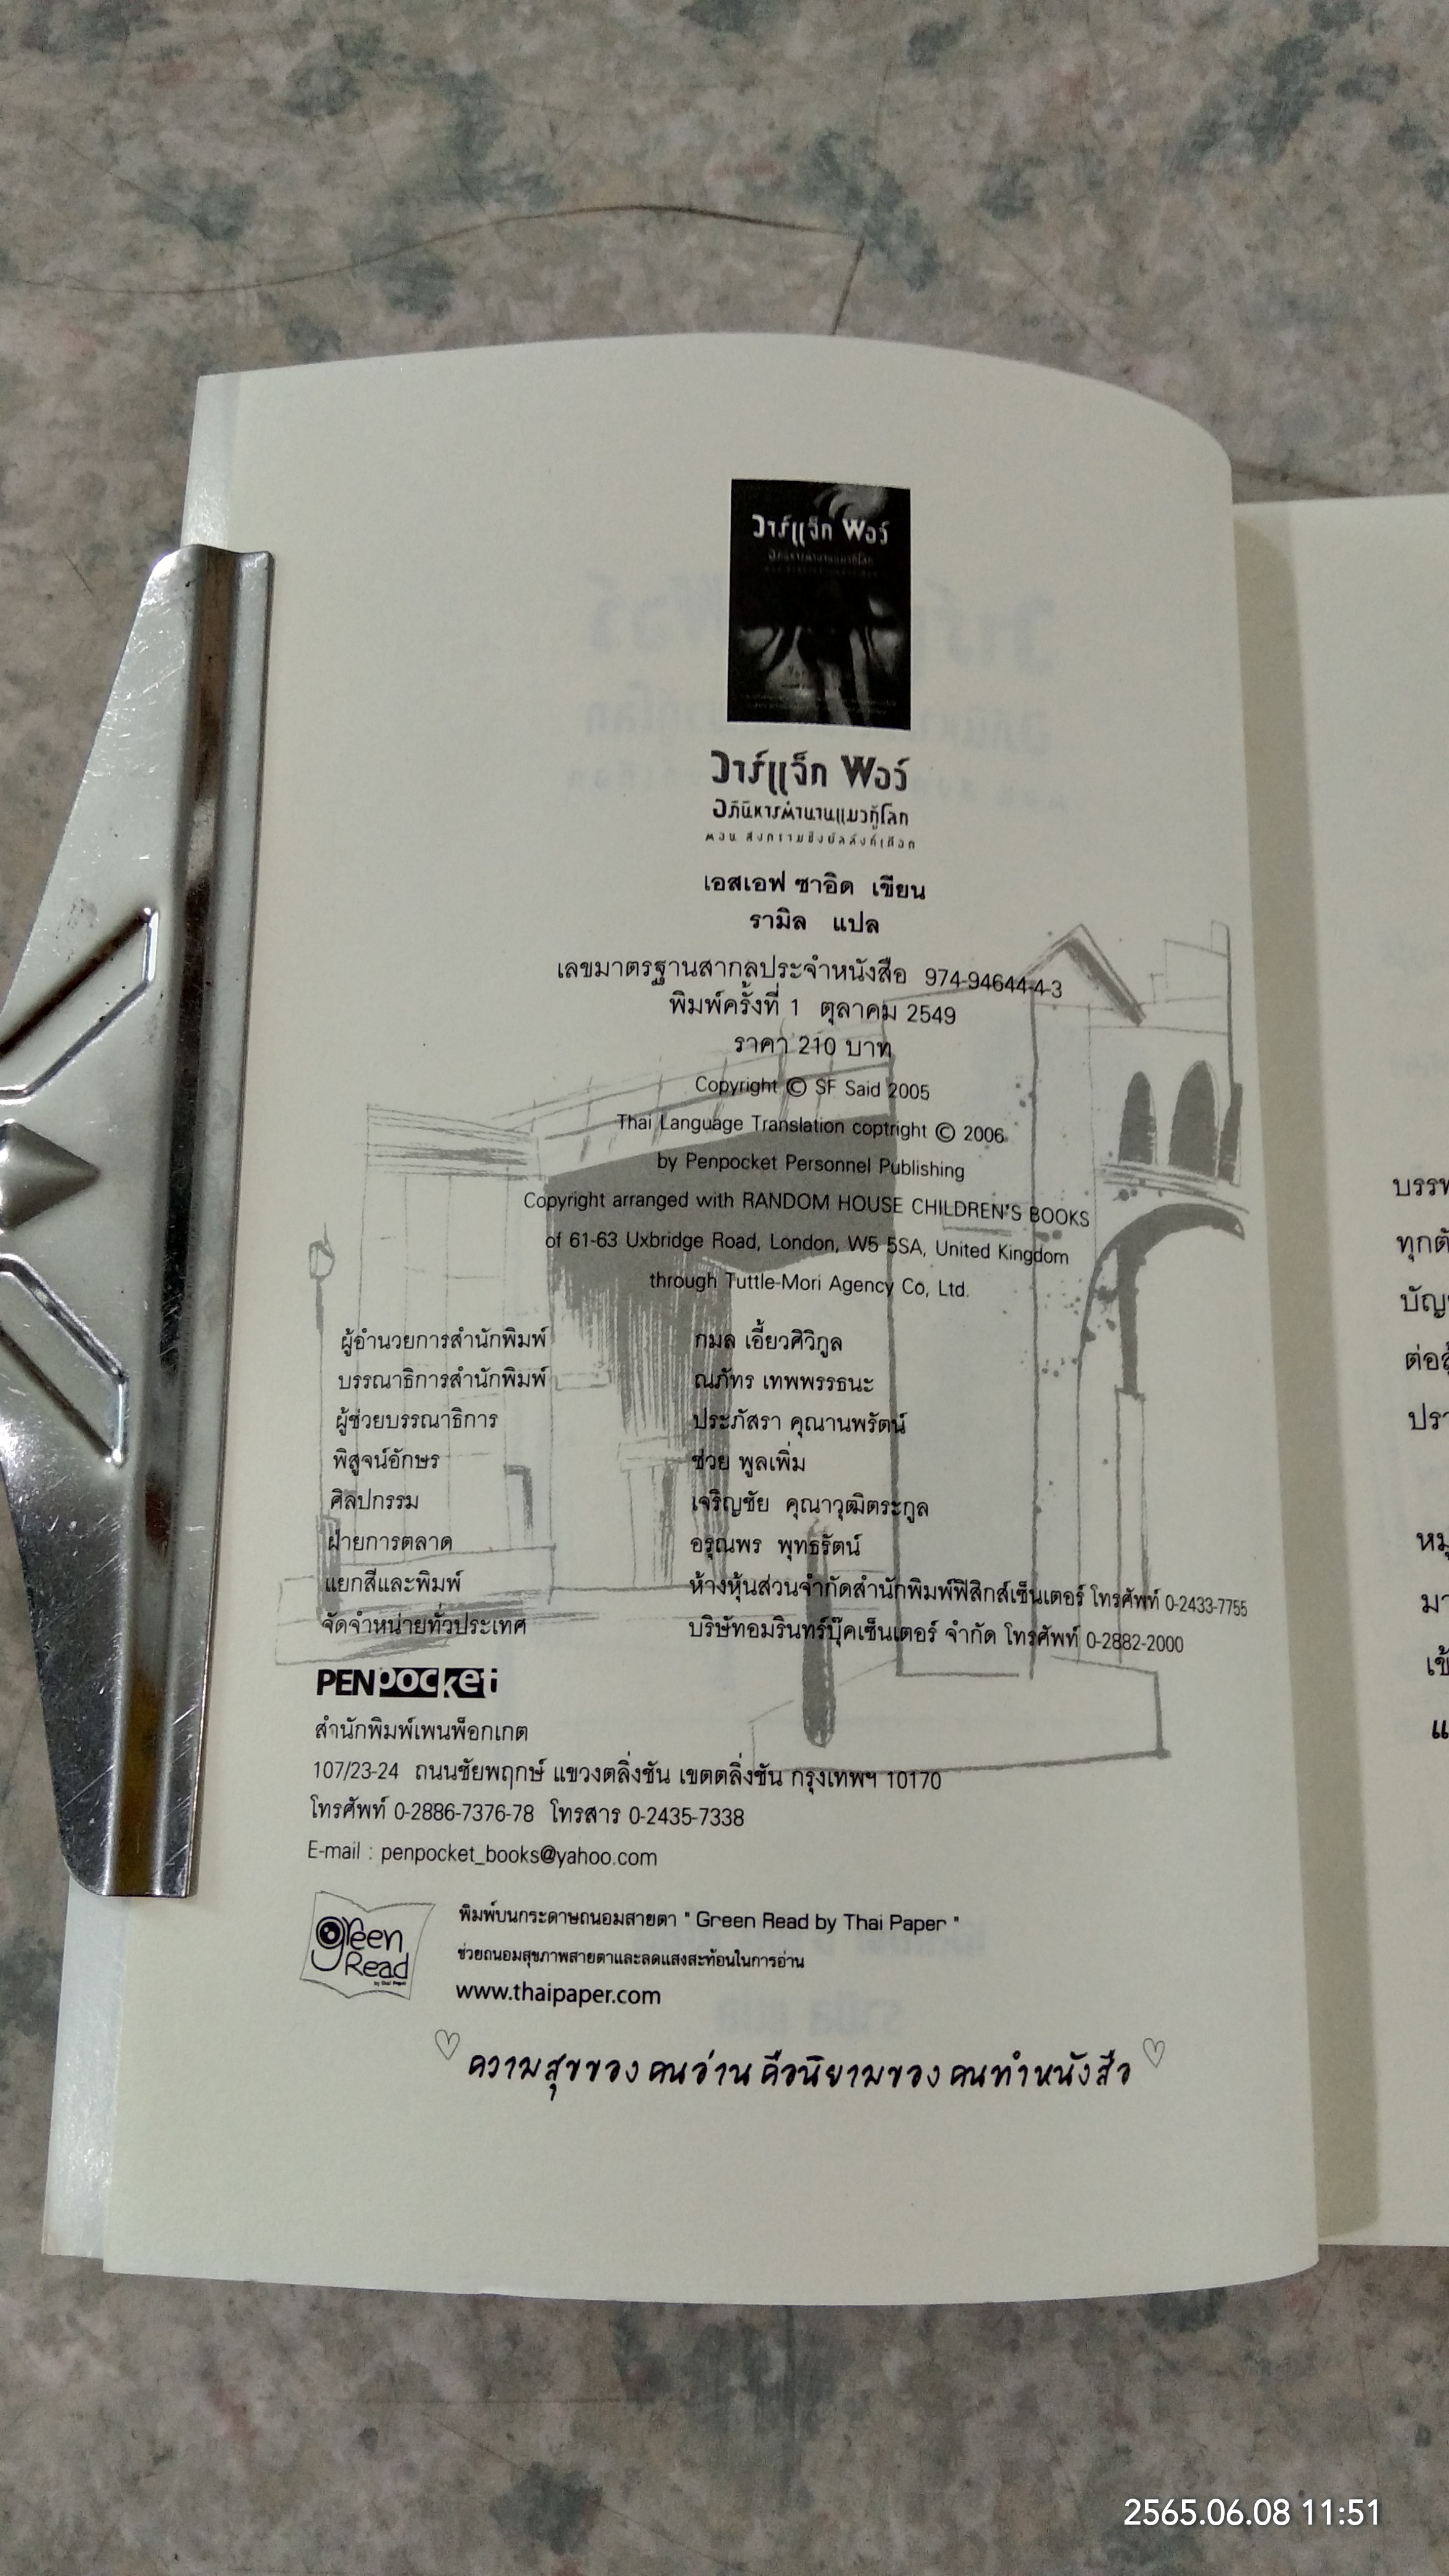 วาร์แจ็ก พอว์
วาร์แจ็ก พอว์
อภินิหารตำนานแมวกู้โลก
ตอน สงครามชิงบัลลังก์เลือด
เอสเอฟ ซาอิด เขียน
รามิล แปล
เลขมาตรฐานสากลประจำหนังสือ 974-94644-4-3
พิมพ์ครั้งที่ 1 ตุลาคม 2549
ราคา 210 บาท
Copyright © SF Said 2005
Thai Language Translation coptright © 2006
by Penpocket Personnel Publishing
Copyright arranged with RANDOM HOUSE CHILDREN'S BOOKS
of 61-63 Uxbridge Road, London, W5 5SA, United Kingdom
through Tuttle-Mori Agency Co, Ltd.
ผู้อำนวยการสำนักพิมพ์ กมล เอี้ยวศิวิกูล
บรรณาธิการสำนักพิมพ์ ณภัทร เทพพรรธนะ
ผู้ช่วยบรรณาธิการ ประภัสรา คุณานพรัตน์
พิสูจน์อักษร ช่วย พูลเพิ่ม
ศิลปกรรม เจริญชัย คุณาวุฒิตระกูล
ฝ่ายการตลาด อรุณพร พุทธรัตน์
แยกสีและพิมพ์ ห้างหุ้นส่วนจำกัดสำนักพิมพ์ฟิสิกส์เซ็นเตอร์ โทรศัพท์ 0-2433-7755
จัดจำหน่ายทั่วประเทศ บริษัทอมรินทร์บุ๊คเซ็นเตอร์ จำกัด โทรศัพท์ 0-2882-2000
PENpocket
สำนักพิมพ์เพนพ็อกเกต
107/23-24 ถนนชัยพฤกษ์ แขวงตลิ่งชัน เขตตลิ่งชัน กรุงเทพฯ 10170
โทรศัพท์ 0-2886-7376-78 โทรสาร 0-2435-7338
E-mail : penpocket_books@yahoo.com
green
Read
by Thai Paper
พิมพ์บนกระดาษถนอมสายตา " Green Read by Thai Paper "
ช่วยถนอมสุขภาพสายตาและลดแสงสะท้อนในการอ่าน
www.thaipaper.com
♡ ความสุขของคนอ่าน คือนิยามของคนทำหนังสือ ♡
2565.06.08 11:51